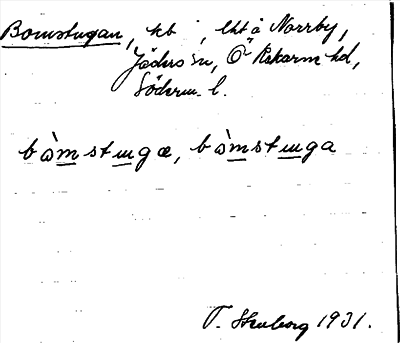 Bomstugan, tht å Norrby,
Jäders sn, Ö Rekarne hd,
Söderm. l.
bòmstugæ, bòmstuga
T. Stenborg 1931.